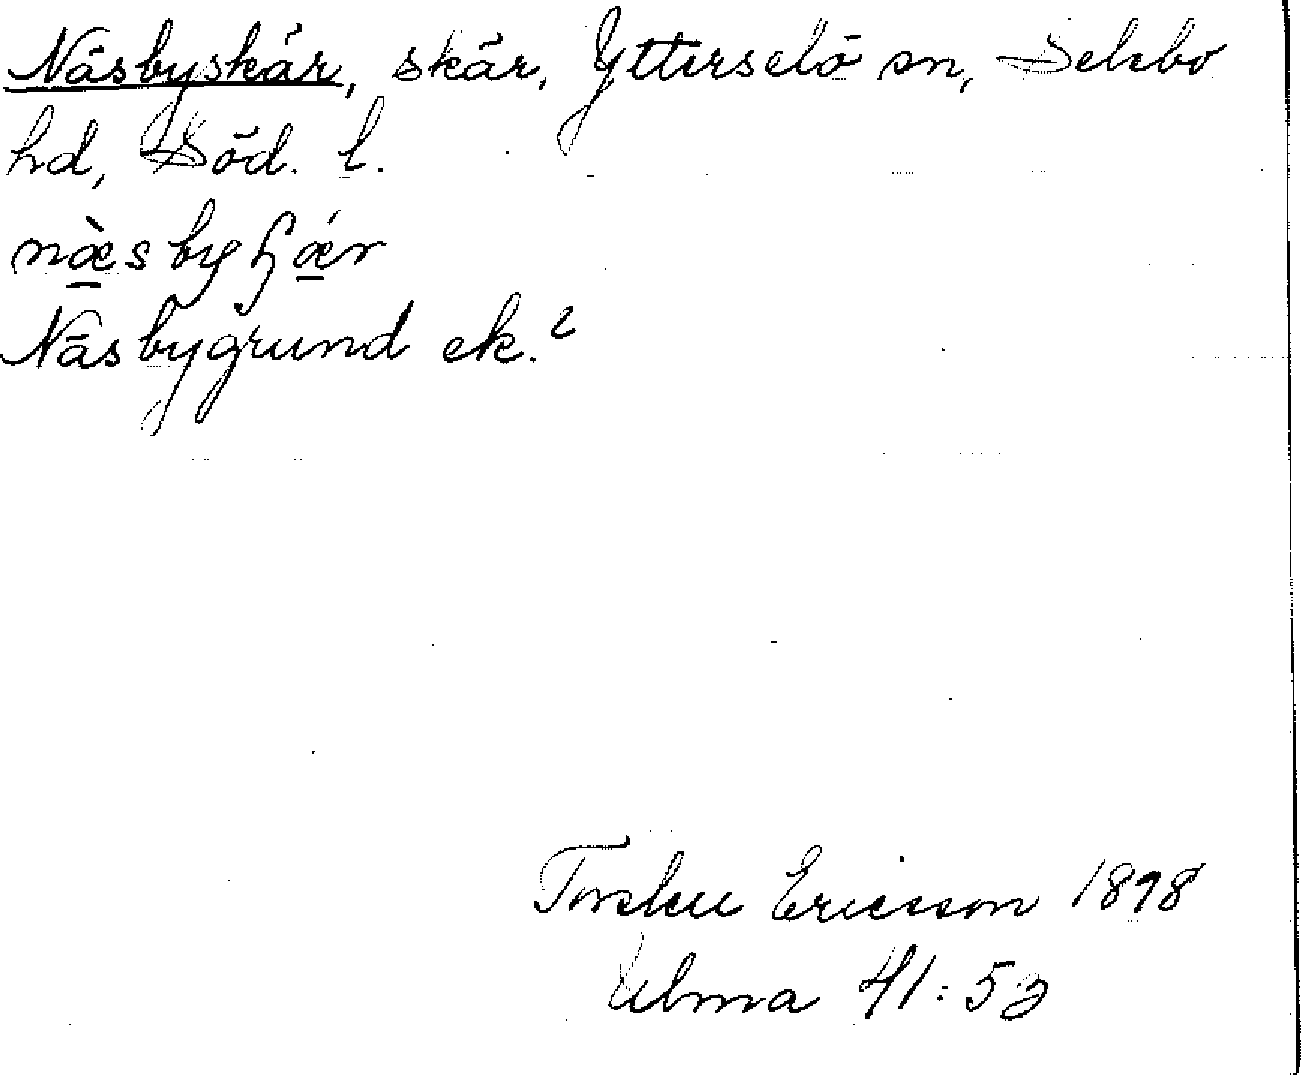 Näsbyskär, skär, Ytterselö sn, Selebo
hd, Söd. l.
næ̀sbyʃǽr
Näsbygrund ek.²
Torsten Ericsson 1898
Ulma 41:53